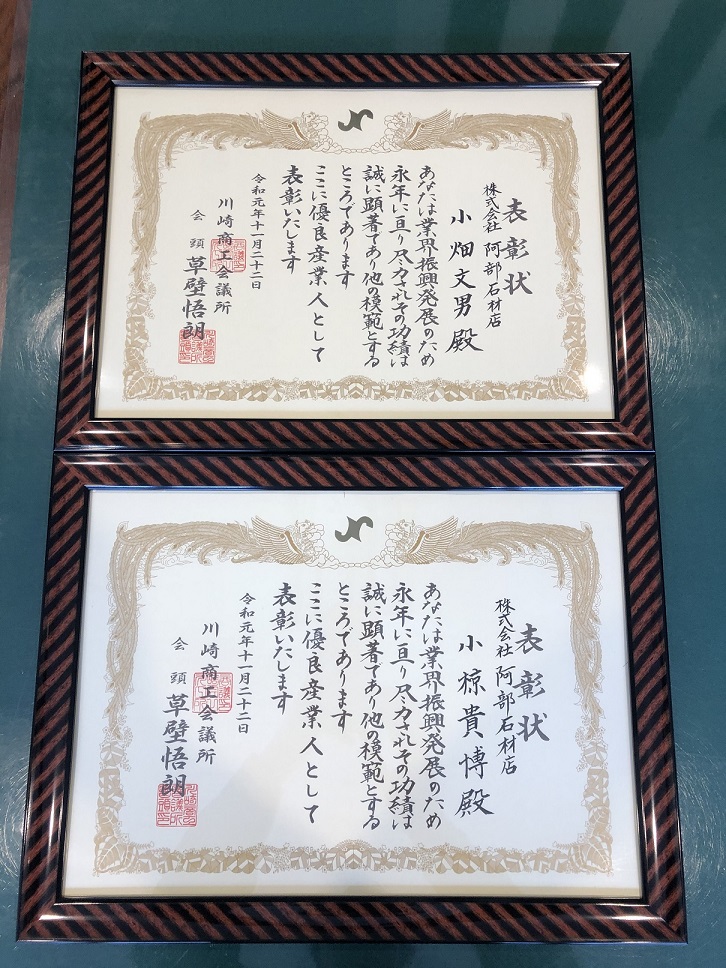 表彰状
株式会社 阿部石材店
小畑文男殿
あなたは業界振興発展のため
永年に亘り尽力されその功績は
誠に顕著であり他の模範とする
ところであります
ここに優良産業人として
表彰いたします
令和元年十一月二十二日
川崎商工会議所
会頭 草壁悟朗
表彰状
株式会社 阿部石材店
小椋貴博殿
あなたは業界振興発展のため
永年に亘り尽力されその功績は
誠に顕著であり他の模範とする
ところであります
ここに優良産業人として
表彰いたします
令和元年十一月二十二日
川崎商工会議所
会頭 草壁悟朗